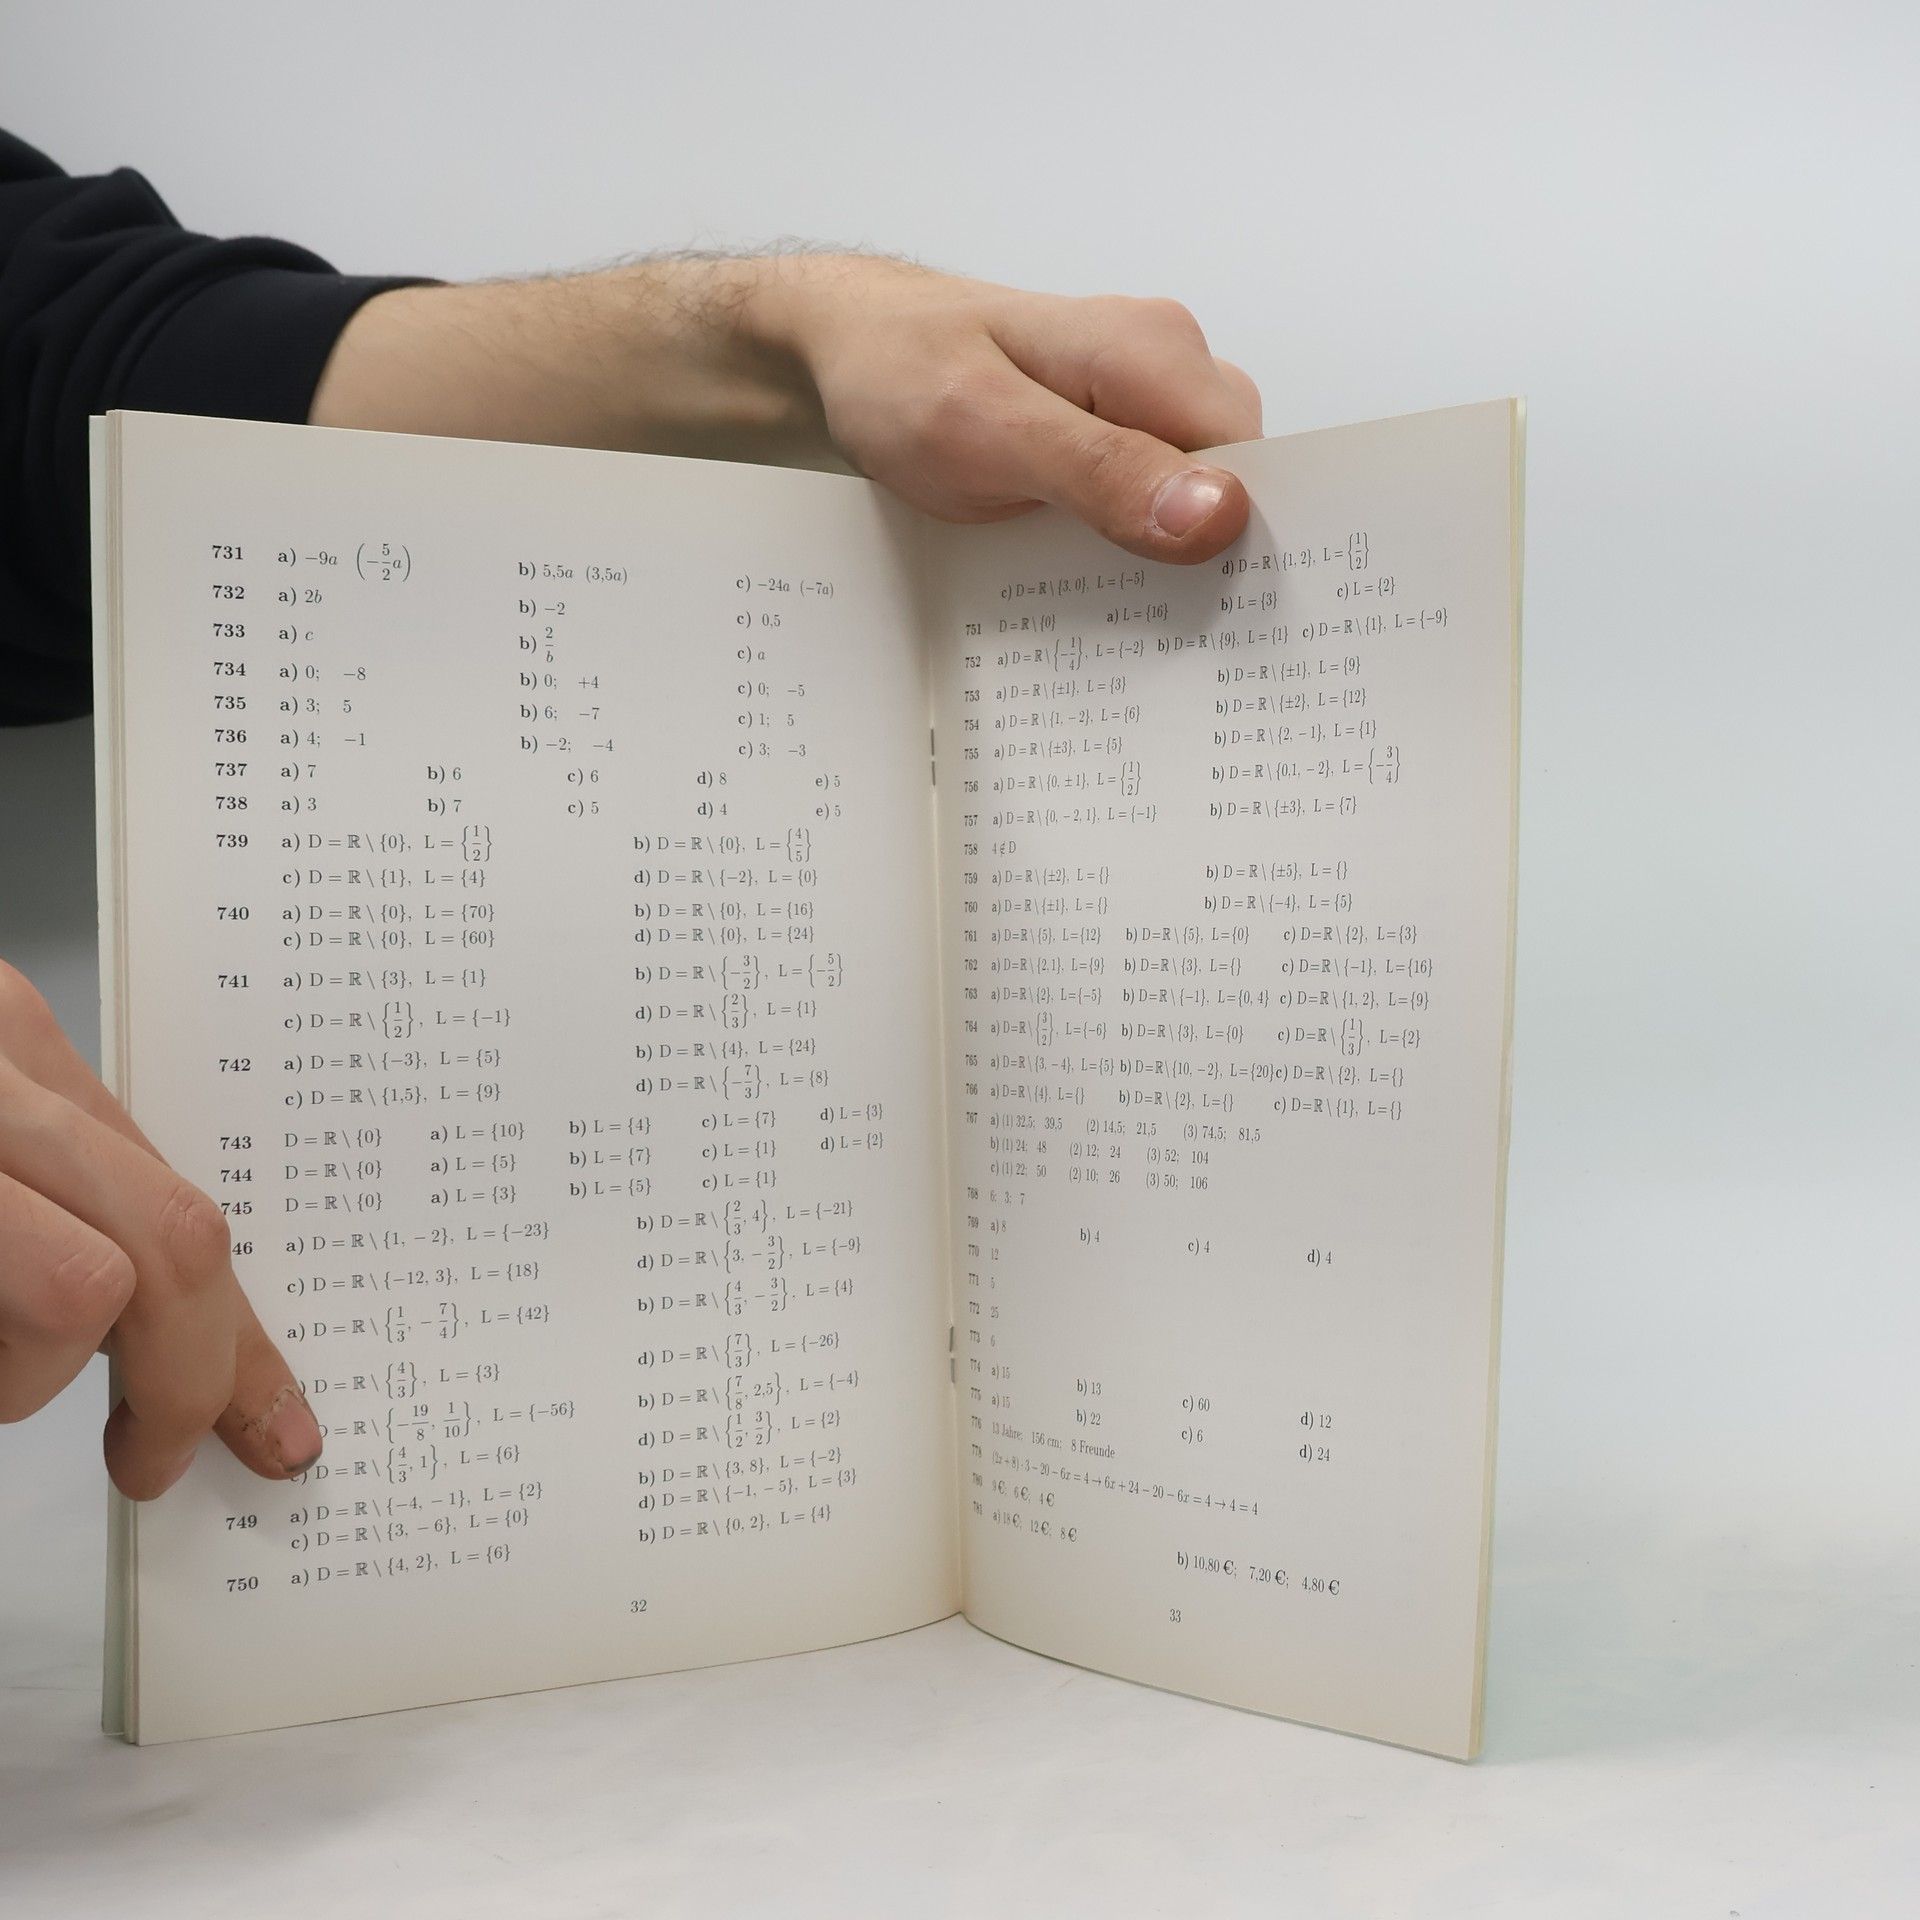 731 a) −9a (−5/2 a) b) 5,5a (3,5a) c) −24a (−7a)
732 a) 2b b) −2 c) 0,5
733 a) c b) 2/b c) a
734 a) 0; −8 b) 0; +4 c) 0; −5
735 a) 3; 5 b) 6; −7 c) 1; 5
736 a) 4; −1 b) −2; −4 c) 3; −3
737 a) 7 b) 6 c) 6 d) 8 e) 5
738 a) 3 b) 7 c) 5 d) 4 e) 5
739 a) D = ℝ \ {0}, L = {1/2} b) D = ℝ \ {0}, L = {4/5}
c) D = ℝ \ {1}, L = {4} d) D = ℝ \ {−2}, L = {0}
740 a) D = ℝ \ {0}, L = {70} b) D = ℝ \ {0}, L = {16}
c) D = ℝ \ {0}, L = {60} d) D = ℝ \ {0}, L = {24}
741 a) D = ℝ \ {3}, L = {1} b) D = ℝ \ {−3/2}, L = {−5/2}
c) D = ℝ \ {1/2}, L = {−1} d) D = ℝ \ {2/3}, L = {1}
742 a) D = ℝ \ {−3}, L = {5} b) D = ℝ \ {4}, L = {24}
c) D = ℝ \ {1,5}, L = {9} d) D = ℝ \ {−7/3}, L = {8}
743 D = ℝ \ {0} a) L = {10} b) L = {4} c) L = {7} d) L = {3}
744 D = ℝ \ {0} a) L = {5} b) L = {7} c) L = {1} d) L = {2}
745 D = ℝ \ {0} a) L = {3} b) L = {5} c) L = {1}
46 a) D = ℝ \ {1, −2}, L = {−23} b) D = ℝ \ {2/3, 4}, L = {−21}
c) D = ℝ \ {−12, 3}, L = {18} d) D = ℝ \ {3, −3/2}, L = {−9}
a) D = ℝ \ {1/3, −7/4}, L = {42} b) D = ℝ \ {4/3, −3/2}, L = {4}
) D = ℝ \ {4/3}, L = {3} d) D = ℝ \ {7/3}, L = {−26}
D = ℝ \ {−19/8, 1/10}, L = {−56} b) D = ℝ \ {7/8, 2,5}, L = {−4}
c) D = ℝ \ {4/3, 1}, L = {6} d) D = ℝ \ {1/2, 3/2}, L = {2}
749 a) D = ℝ \ {−4, −1}, L = {2} b) D = ℝ \ {3, 8}, L = {−2}
c) D = ℝ \ {3, −6}, L = {0} d) D = ℝ \ {−1, −5}, L = {3}
750 a) D = ℝ \ {4, 2}, L = {6} b) D = ℝ \ {0, 2}, L = {4}
32
c) D = ℝ \ {3, 0}, L = {−5} d) D = ℝ \ {1, 2}, L = {1/2}
751 D = ℝ \ {0} a) L = {16} b) L = {3} c) L = {2}
752 a) D = ℝ \ {−1/4}, L = {−2} b) D = ℝ \ {9}, L = {1} c) D = ℝ \ {1}, L = {−9}
753 a) D = ℝ \ {±1}, L = {3} b) D = ℝ \ {±1}, L = {9}
754 a) D = ℝ \ {1, −2}, L = {6} b) D = ℝ \ {±2}, L = {12}
755 a) D = ℝ \ {±3}, L = {5} b) D = ℝ \ {2, −1}, L = {1}
756 a) D = ℝ \ {0, ±1}, L = {1/2} b) D = ℝ \ {0,1, −2}, L = {−3/4}
757 a) D = ℝ \ {0, −2, 1}, L = {−1} b) D = ℝ \ {±3}, L = {7}
758 4 ∉ D
759 a) D = ℝ \ {±2}, L = {} b) D = ℝ \ {±5}, L = {}
760 a) D = ℝ \ {±1}, L = {} b) D = ℝ \ {−4}, L = {5}
761 a) D=ℝ \ {5}, L={12} b) D=ℝ \ {5}, L={0} c) D=ℝ \ {2}, L={3}
762 a) D=ℝ \ {2,1}, L={9} b) D=ℝ \ {3}, L={} c) D=ℝ \ {−1}, L={16}
763 a) D=ℝ \ {2}, L={−5} b) D=ℝ \ {−1}, L={0, 4} c) D=ℝ \ {1, 2}, L={9}
764 a) D=ℝ \ {3/2}, L={−6} b) D=ℝ \ {3}, L={0} c) D=ℝ \ {1/3}, L={2}
765 a) D=ℝ \ {3, −4}, L={5} b) D=ℝ \ {10, −2}, L={20} c) D=ℝ \ {2}, L={}
766 a) D=ℝ \ {4}, L={} b) D=ℝ \ {2}, L={} c) D=ℝ \ {1}, L={}
767 a) (1) 32,5; 39,5 (2) 14,5; 21,5 (3) 74,5; 81,5
b) (1) 24; 48 (2) 12; 24 (3) 52; 104
c) (1) 22; 50 (2) 10; 26 (3) 50; 106
768 6; 3; 7
769 a) 8 b) 4 c) 4 d) 4
770 12
771 5
772 25
773 6
774 a) 15 b) 13 c) 60 d) 12
775 a) 15 b) 22 c) 6 d) 24
776 13 Jahre; 156 cm; 8 Freunde
778 (2x + 8) · 3 − 20 − 6x = 4 → 6x + 24 − 20 − 6x = 4 → 4 = 4
780 9 €; 6 €; 4 €
781 a) 18 €; 12 €; 8 € b) 10,80 €; 7,20 €; 4,80 €
33